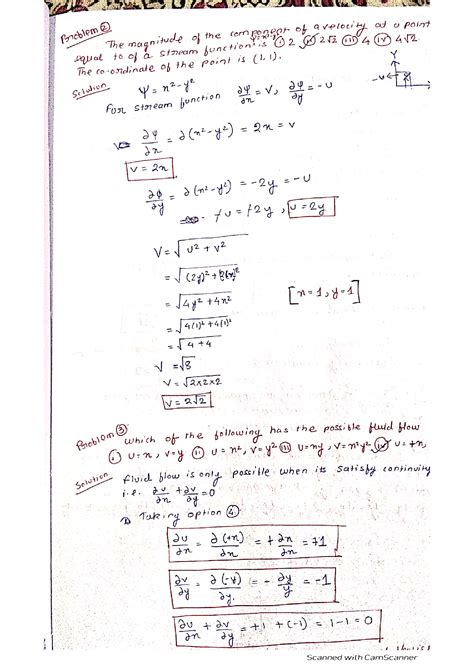 Problem ②
The magnitude of the component of a velocity at a point
equal to of a stream function is (i) 2 (ii) 2√2 (iii) 4 (iv) 4√2
The co-ordinate of the point is (1,1).
Solution
Ψ = x² - y²
For stream function ∂Ψ/∂x = V, ∂Ψ/∂y = -U
∂Ψ/∂x = ∂(x²-y²) = 2x = V
V = 2x
∂ϕ/∂y = ∂(x²-y²) = -2y = -U
+U = +2y, U = 2y
V = √U² + V²
= √(2y)² + (2x)²
= √4y² + 4x² [x=1, y=1]
= √4(1)² + 4(1)²
= √4 + 4
V = √8
V = √2×2×2
V = 2√2
Problem ③
Which of the following has the possible fluid flow
(i) U=x, V=y (ii) U=x², V=y² (iii) U=xy, V=x²y² (iv) U=+x,
Solution
Fluid flow is only possible when its satisfy continuity
i.e. ∂v/∂x + ∂v/∂y = 0
1) Taking option ④
∂U/∂x = ∂(+x)/∂x = +∂x/∂x = +1
∂V/∂y = ∂(-y)/∂y = -∂y/∂y = -1
∂U/∂x + ∂V/∂y = +1 + (-1) = 1-1 = 0
Scanned with CamScanner